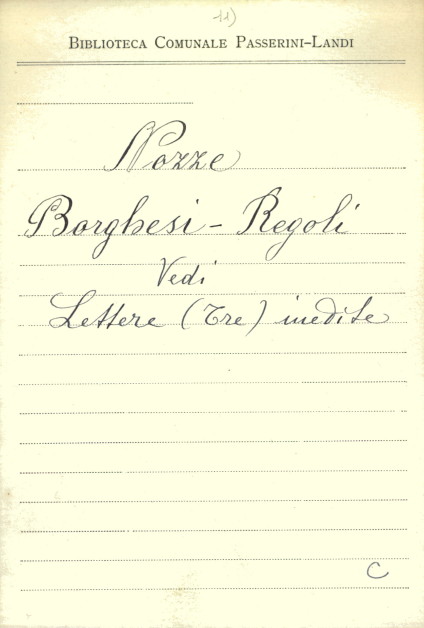 11)
BIBLIOTECA COMUNALE PASSERINI-LANDI
Nozze
Borghesi - Regoli
Vedi
Lettere (Tre) inedite
C